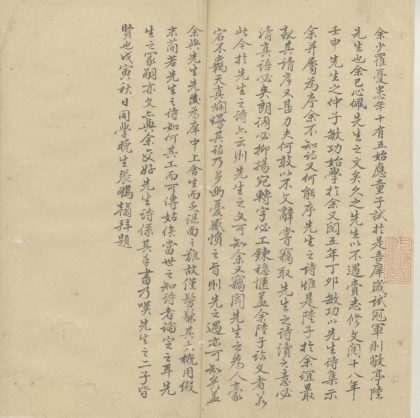 余少罹憂患年十有五始應童子試於是吾庠歲試冠軍則敬亭陸
先生也余已心佩先生之文矣久之先生以不遇賫志修文閱十八年
壬申先生之仲子敏功始學於余又閱五年丁丑敏功以先生詩集示
余并屬為序余不知詩又何能序先生之詩惟是陸子於余誼最
執其請序又甚力夫何敢以不文辭嘗竊取先生之詩讀之意必
清真語必爽朗調必抑揚宛轉字必工鍊穩愜蓋余陸子論文者若
此今於先生之詩亦云則先生之文可知余又竊聞先生之為人豪
宕不羈天真爛熳其詩乃多幽憂感憤之旨則先生之遇亦可知矣蓋
余與先生先後為庠中上舍生而乏謀面之雅故僅髣髴其大概用假
末簡若先生之詩如何其工而可傳姑俟當世之知詩者論定之耳先
生之冢嗣亦文與余交好先生詩係其手書乃嘆先生之二子皆
賢也戊寅秋日同學晚生張鵬翰拜題